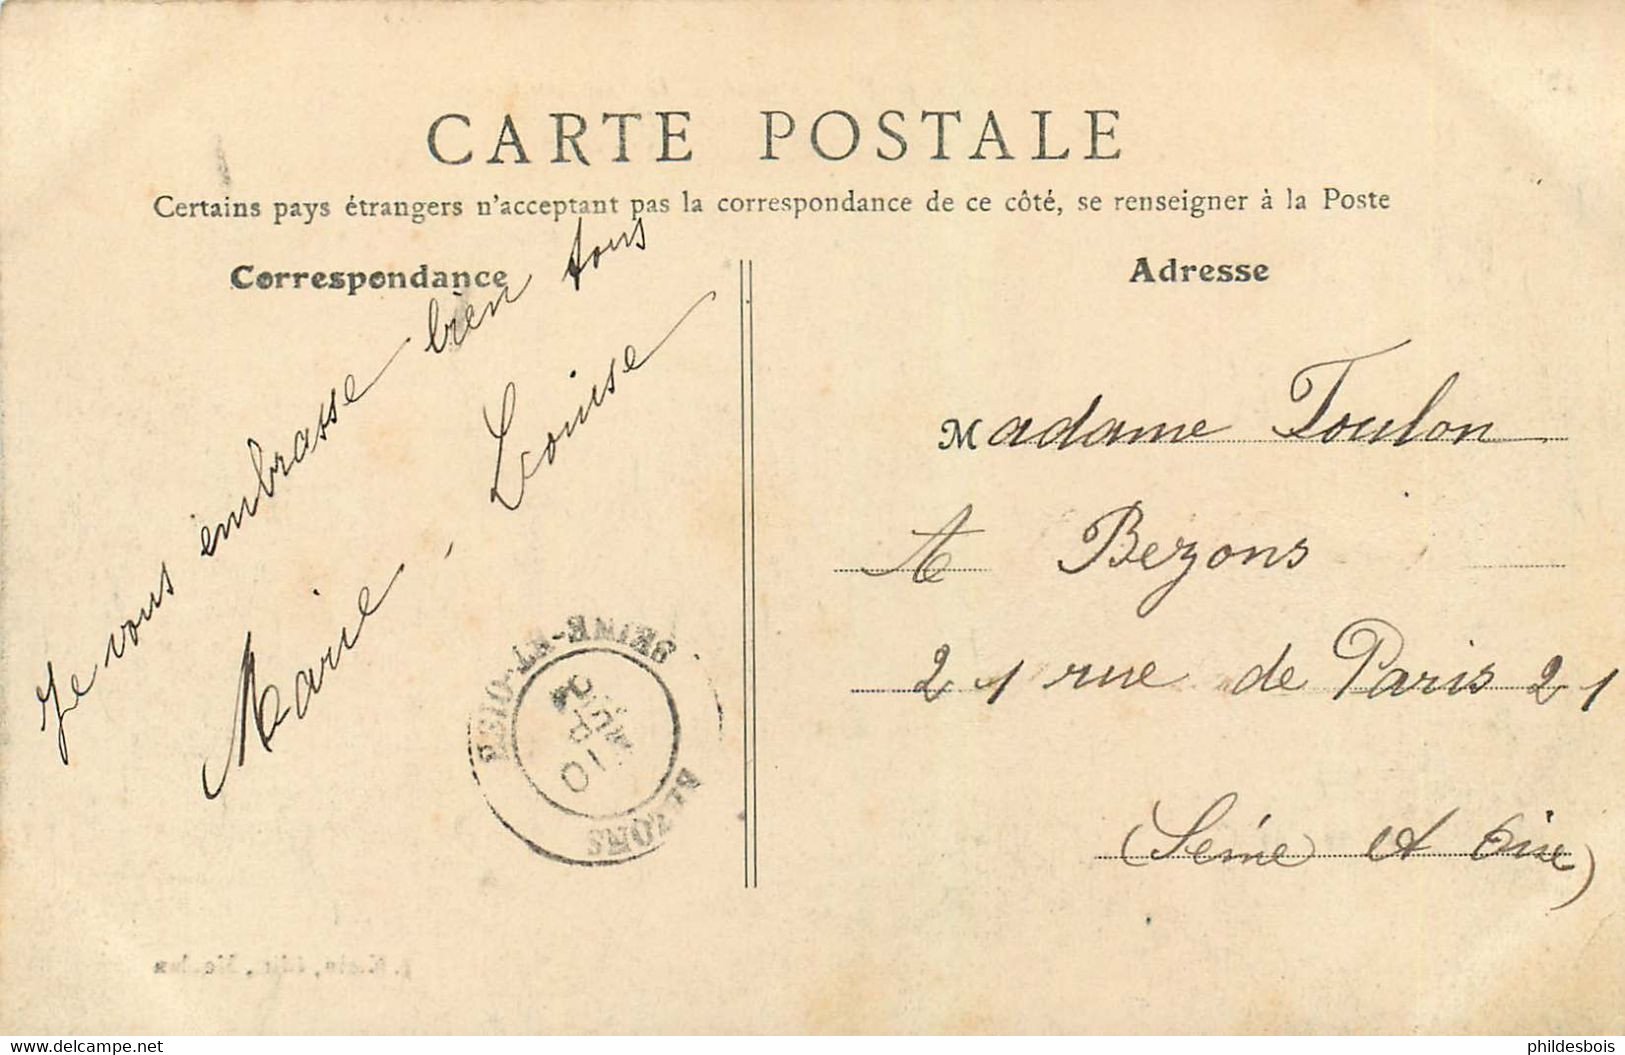 CARTE POSTALE
Certains pays étrangers n'acceptant pas la correspondance de ce côté, se renseigner à la Poste
Correspondance
Je vous embrasse bien tous
Marie - Louise
Adresse
Madame Toulon
A Bezons
21 rue de Paris 21
(Seine et Oise)
SEINE-ET-OISE
BEZONS
www.delcampe.net
phildesbois